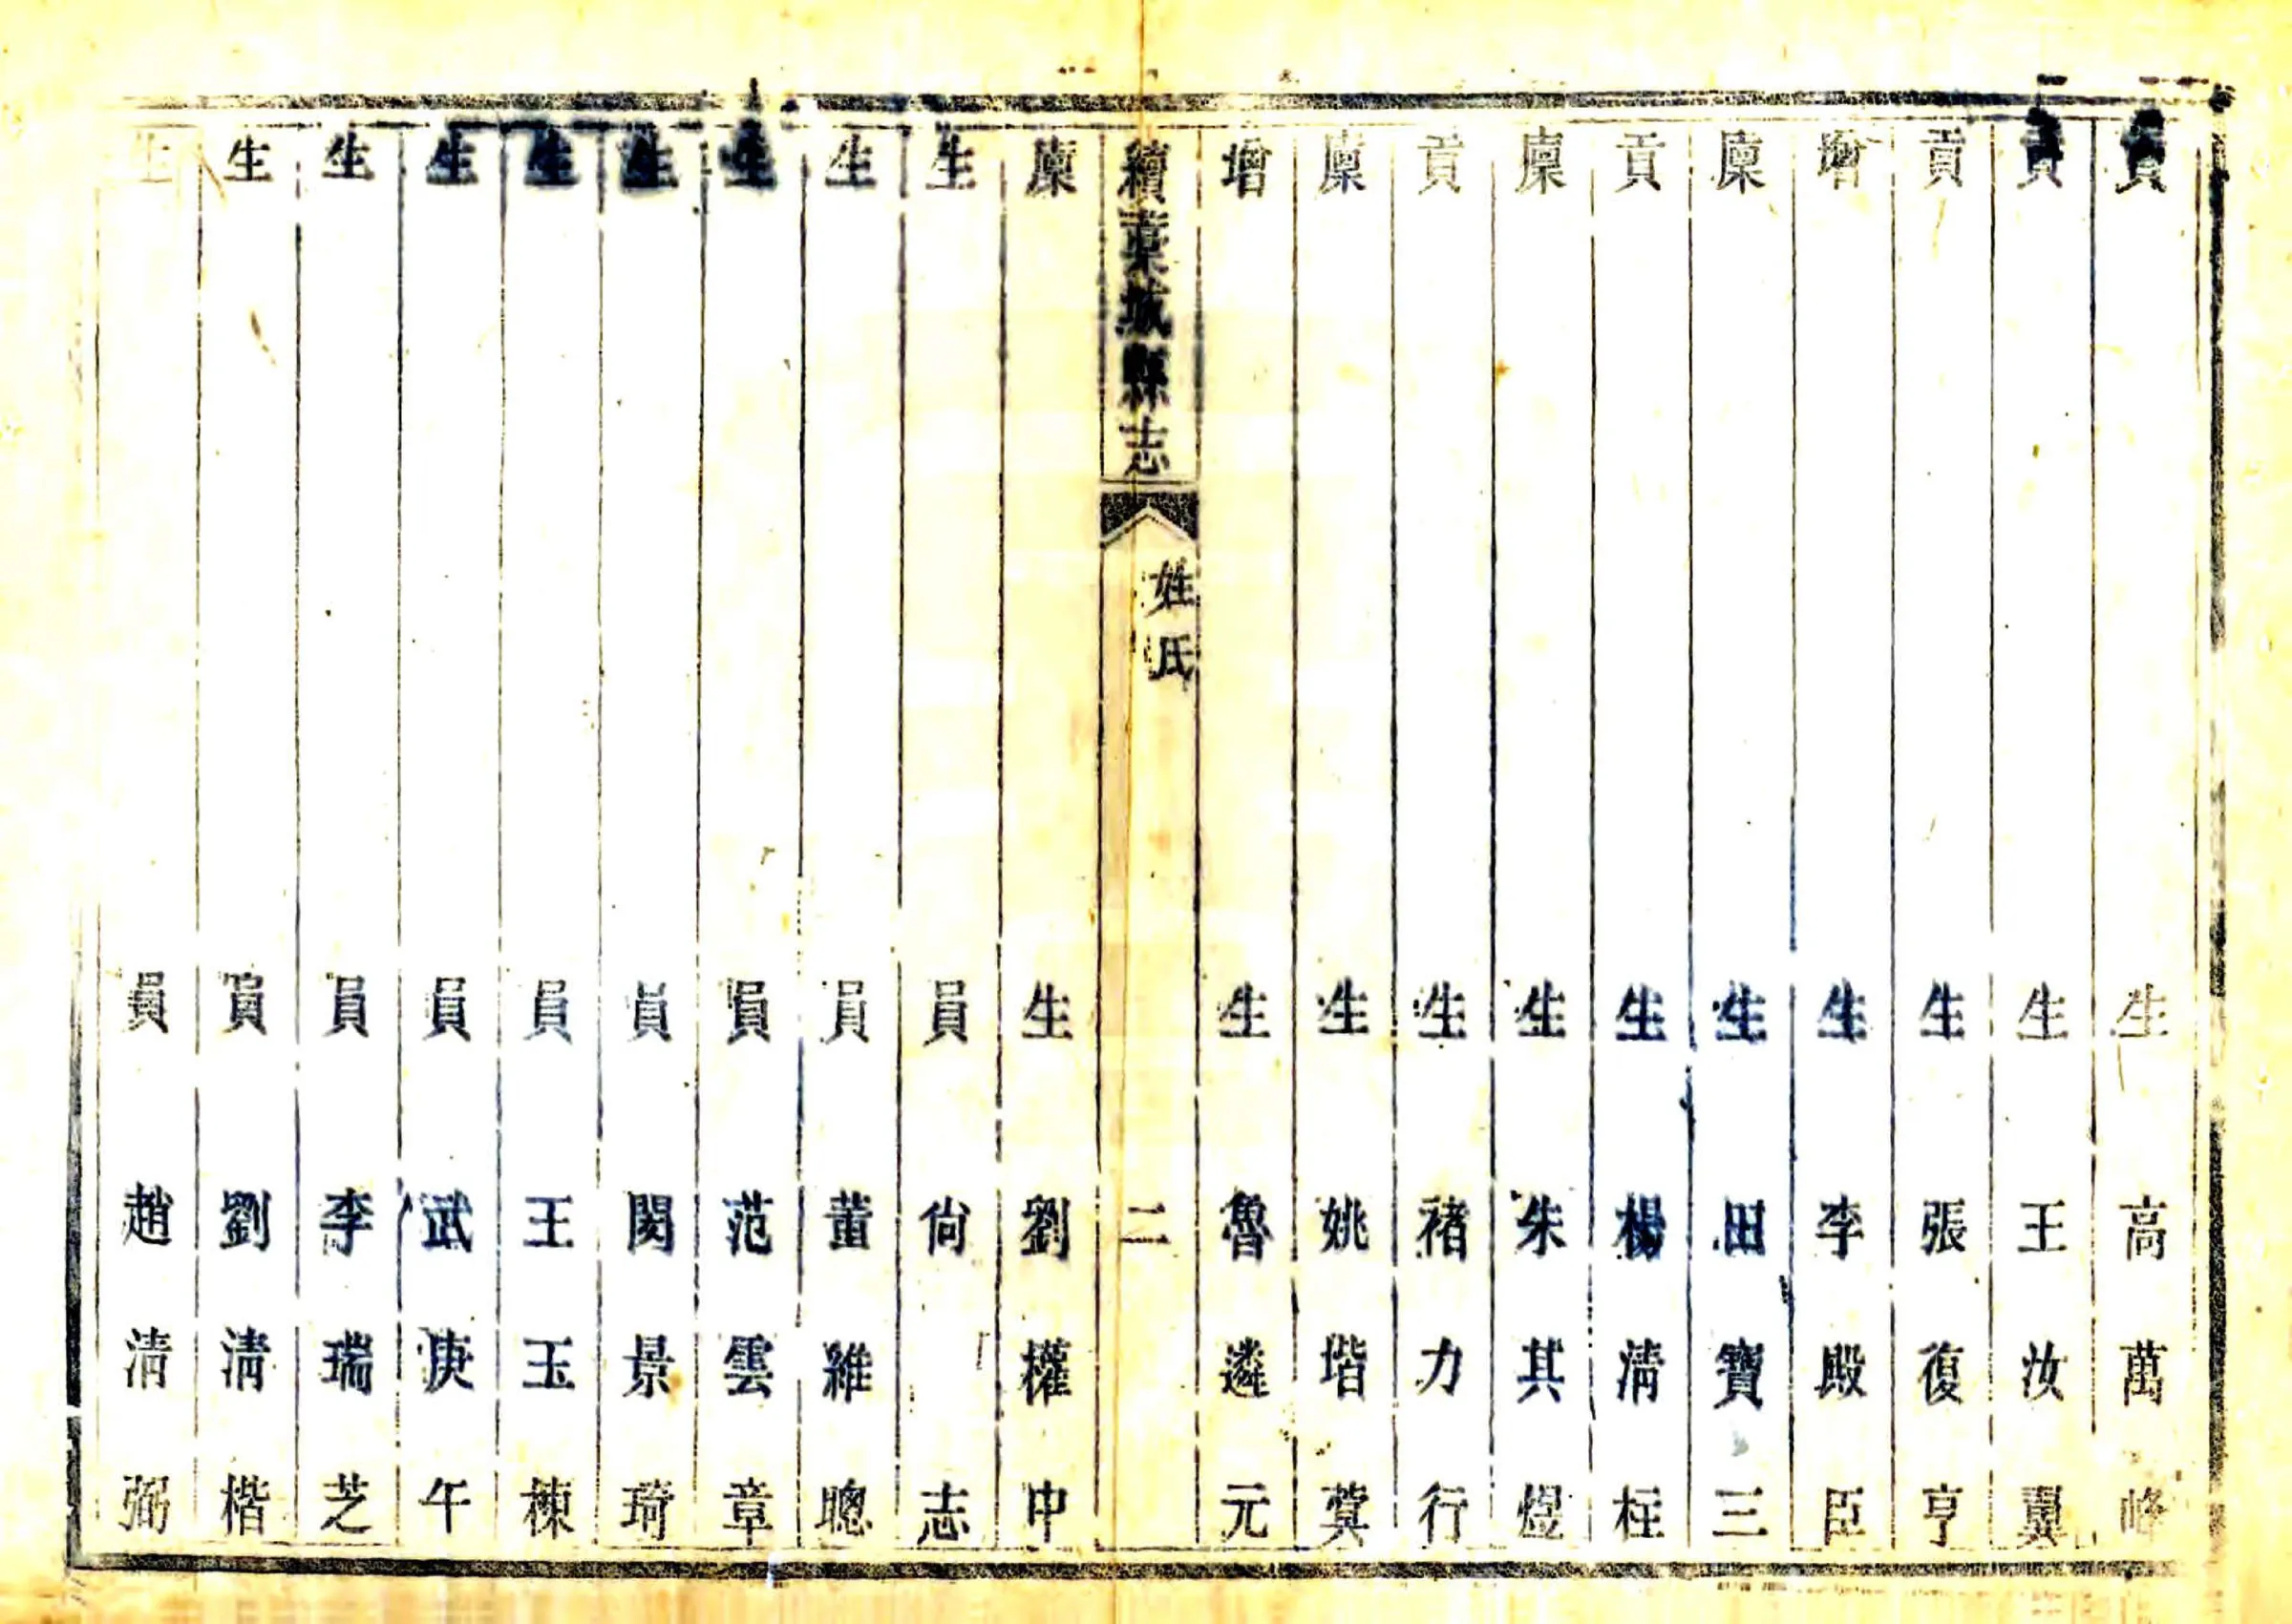 貢生高萬峰
貢生王汝翼
貢生張復亨
增生李殿臣
廩生田寶三
貢生楊清柱
廩生朱其煜
貢生褚力行
廩生姚堦蓂
增生魯遴元
續藁城縣志
姓氏
二
廩生劉權中
生員尙志
生員董維聰
生員范雲章
生員閻景琦
生員王玉棟
生員武庚午
生員李瑞芝
生員劉清楷
生員趙清弼